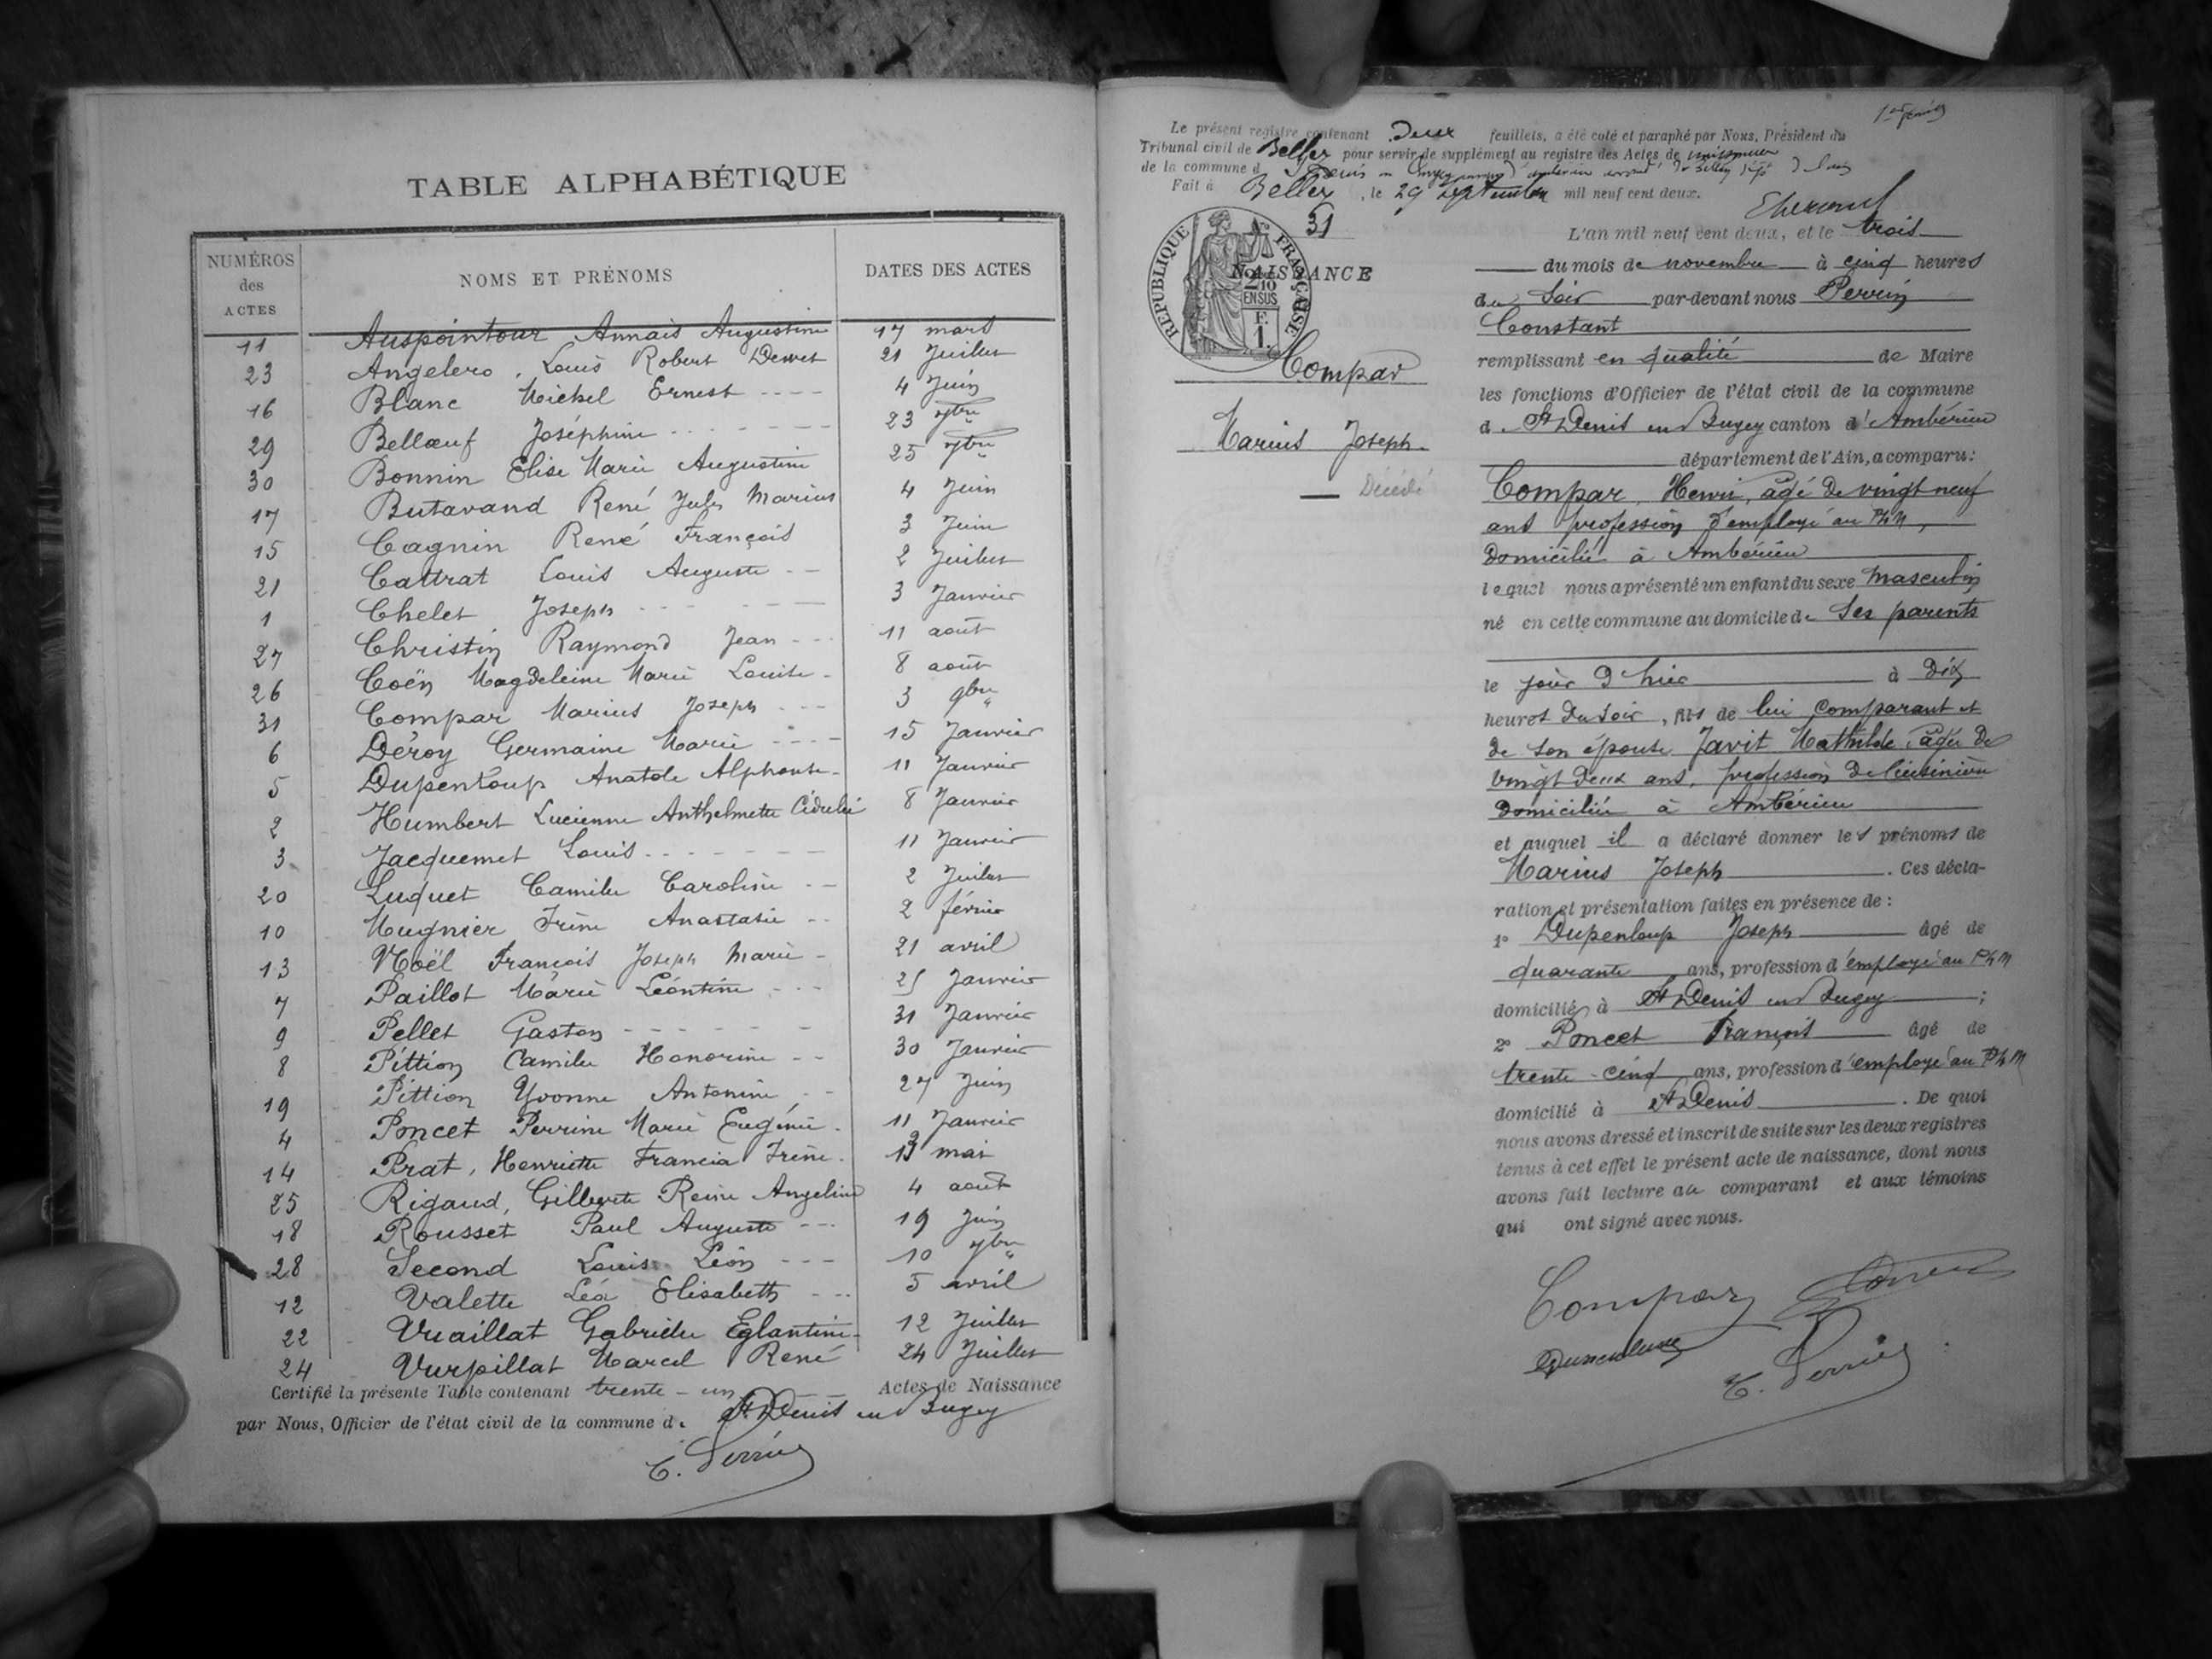 TABLE ALPHABÉTIQUE
NUMÉROS des ACTES NOMS ET PRÉNOMS DATES DES ACTES
11 Auspointour Annaïs Augustine 17 mars
23 Angelero, Louis Robert Dewet 21 Juillet
16 Blanc Michel Ernest 4 Juin
29 Bellœuf Joséphine 23 7bre
30 Bonnin Elise Marie Augustine 25 7bre
17 Butavand René Jules Marius 4 Juin
15 Cagnin René François 3 Juin
21 Cattrat Louis Auguste 2 Juillet
1 Chelet Joseph 3 Janvier
27 Christin Raymond Jean 11 août
26 Coën Magdeleine Marie Louise 8 août
31 Compar Marius Joseph 3 9bre
6 Déroy Germaine Marie 15 Janvier
5 Dupenloup Anatole Alphonse 11 Janvier
2 Humbert Lucienne Anthelmette 8 Janvier
3 Jacquemet Louis 11 Janvier
20 Luquet Camille Caroline 2 Juillet
10 Mugnier Irène Anastasie 2 février
13 Noël François Joseph Marie 21 avril
7 Paillot Marie Léontine 25 Janvier
9 Pellet Gaston 31 Janvier
8 Pittion Camille Honorine 30 Janvier
19 Pittion Yvonne Antonine 27 Juin
4 Poncet Perrine Marie Eugénie 11 Janvier
14 Prat, Henriette Francia Irène mai
25 Rigaud, Gilberte Reine Angeline 4 août
18 Rousset Paul Auguste 19 Juin
28 Second Louis Léon 10 7bre
12 Valette Léa Elisabeth 5 avril
22 Vuaillat Gabrielle Eglantine 12 Juillet
24 Vurpillat Marcel René 24 Juillet
Certifié la présente Table contenant trente-un Actes de Naissance
par Nous, Officier de l'état civil de la commune de St Denis en Bugey
C. Perrin
Le présent registre contenant Deux feuillets, a été coté et paraphé par Nous, Président du
Tribunal civil de Belley pour servir de supplément au registre des Actes de naissance
de la commune d St Denis en Bugey
Fait à Belley, le 29 septembre mil neuf cent deux.
31
RÉPUBLIQUE FRANÇAISE
2/10 EN SUS
F. 1.
NAISSANCE
Compar
Marius Joseph
Décédé
L'an mil neuf cent deux, et le trois
du mois de novembre à cinq heures
du soir par-devant nous Perrin
Constant
remplissant en qualité de Maire
les fonctions d'Officier de l'état civil de la commune
d. St Denis en Bugey canton d'Ambérieu
département de l'Ain, a comparu:
Compar, Henri, âgé de vingt neuf
ans profession d'employé au PLM,
domicilié à Ambérieu
lequel nous a présenté un enfant du sexe masculin
né en cette commune au domicile de ses parents
le jour d'hier à dix
heures du soir, fils de lui comparant et
de son épouse Javit Mathilde, âgée de
vingt deux ans, profession de Cuisinière
domiciliée à Ambérieu
et auquel il a déclaré donner les prénoms de
Marius Joseph. Ces décla-
ration et présentation faites en présence de :
1° Dupenloup Joseph âgé de
quarante ans, profession d'employé au PLM
domicilié à St Denis en Bugey ;
2° Poncet François âgé de
trente-cinq ans, profession d'employé au PLM
domicilié à St Denis. De quoi
nous avons dressé et inscrit de suite sur les deux registres
tenus à cet effet le présent acte de naissance, dont nous
avons fait lecture au comparant et aux témoins
qui ont signé avec nous.
Compar Poncet
Dupenloup
C. Perrin